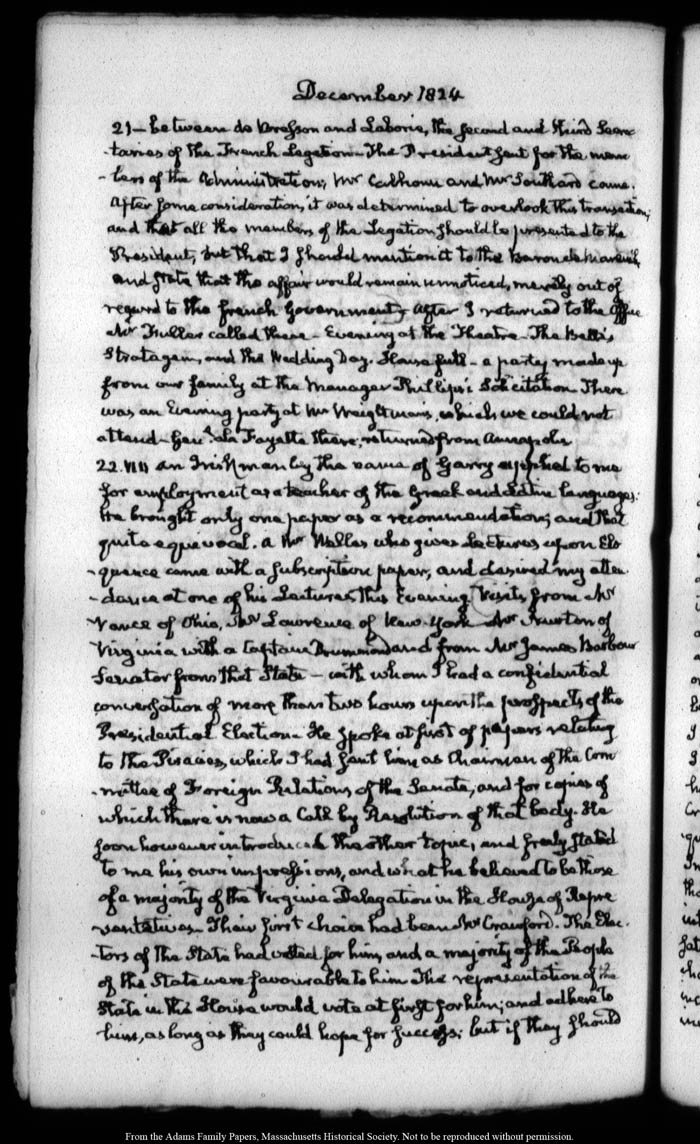 December 1824
21 — between de Bresson and Laborie, the second and third Secre-
-taries of the French Legation — The President sent for the mem
-bers of the Administration; Mr Calhoun and Mr Southard came.
After some consideration, it was determined to overlook this transaction;
and that all the members of the Legation should be presented to the
President, but that I should mention it to the Baron de Mareuil,
and state that the affair would remain unnoticed, merely out of
regard to the french Government — After I returned to the Office
Mr Fuller called there — Evening at the Theatre — The Belle's
Stratagem, and the Wedding Day. House full — a party made up
from our family at the Manager Phillips's Solicitation. There
was an Evening party at Mr Weightman's, which we could not
attend — Genl. La Fayette there; returned from Annapolis
22. VII an Irishman by the name of Garry applied to me
for employment as a teacher of the Greek and Latin languages.
He brought only one paper as a recommendation; and that
quite equivocal. a Mr who gives Lectures upon Elo-
-quence came with a subscription paper, and desired my atten-
-dance at one of his Lectures this Evening Visits from Mr
Vance of Ohio, Mr Lawrence of New-York Mr Newton of
Virginia with a Captain Drummond and from Mr James Barbour
Senator from that State — with whom I had a confidential
conversation of more than two hours upon the prospects of the
Presidential Election — He spoke at first of papers relating
to the Piracies, which I had sent him as Chairman of the Com
-mittee of Foreign Relations of the Senate, and for copies of
which there is now a Call by Resolution of that body. He
soon however introduced the other topic, and freely stated
to me his own impressions, and what he believed to be those
of a majority of the Virginia Delegation in the House of Repre
sentatives — Their first choice had been Mr Crawford. The Elec-
-tors of the State had voted for him, and a majority of the People
of the State were favourable to him The representation of the
State in the House would vote at first for him; and adhere to
him, as long as they could hope for success; but if they should
From the Adams Family Papers, Massachusetts Historical Society. Not to be reproduced without permission.